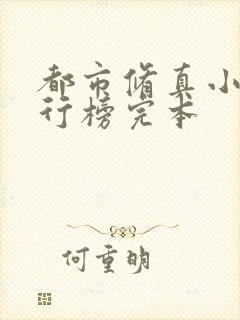 都市修真小
行榜完本
何重明